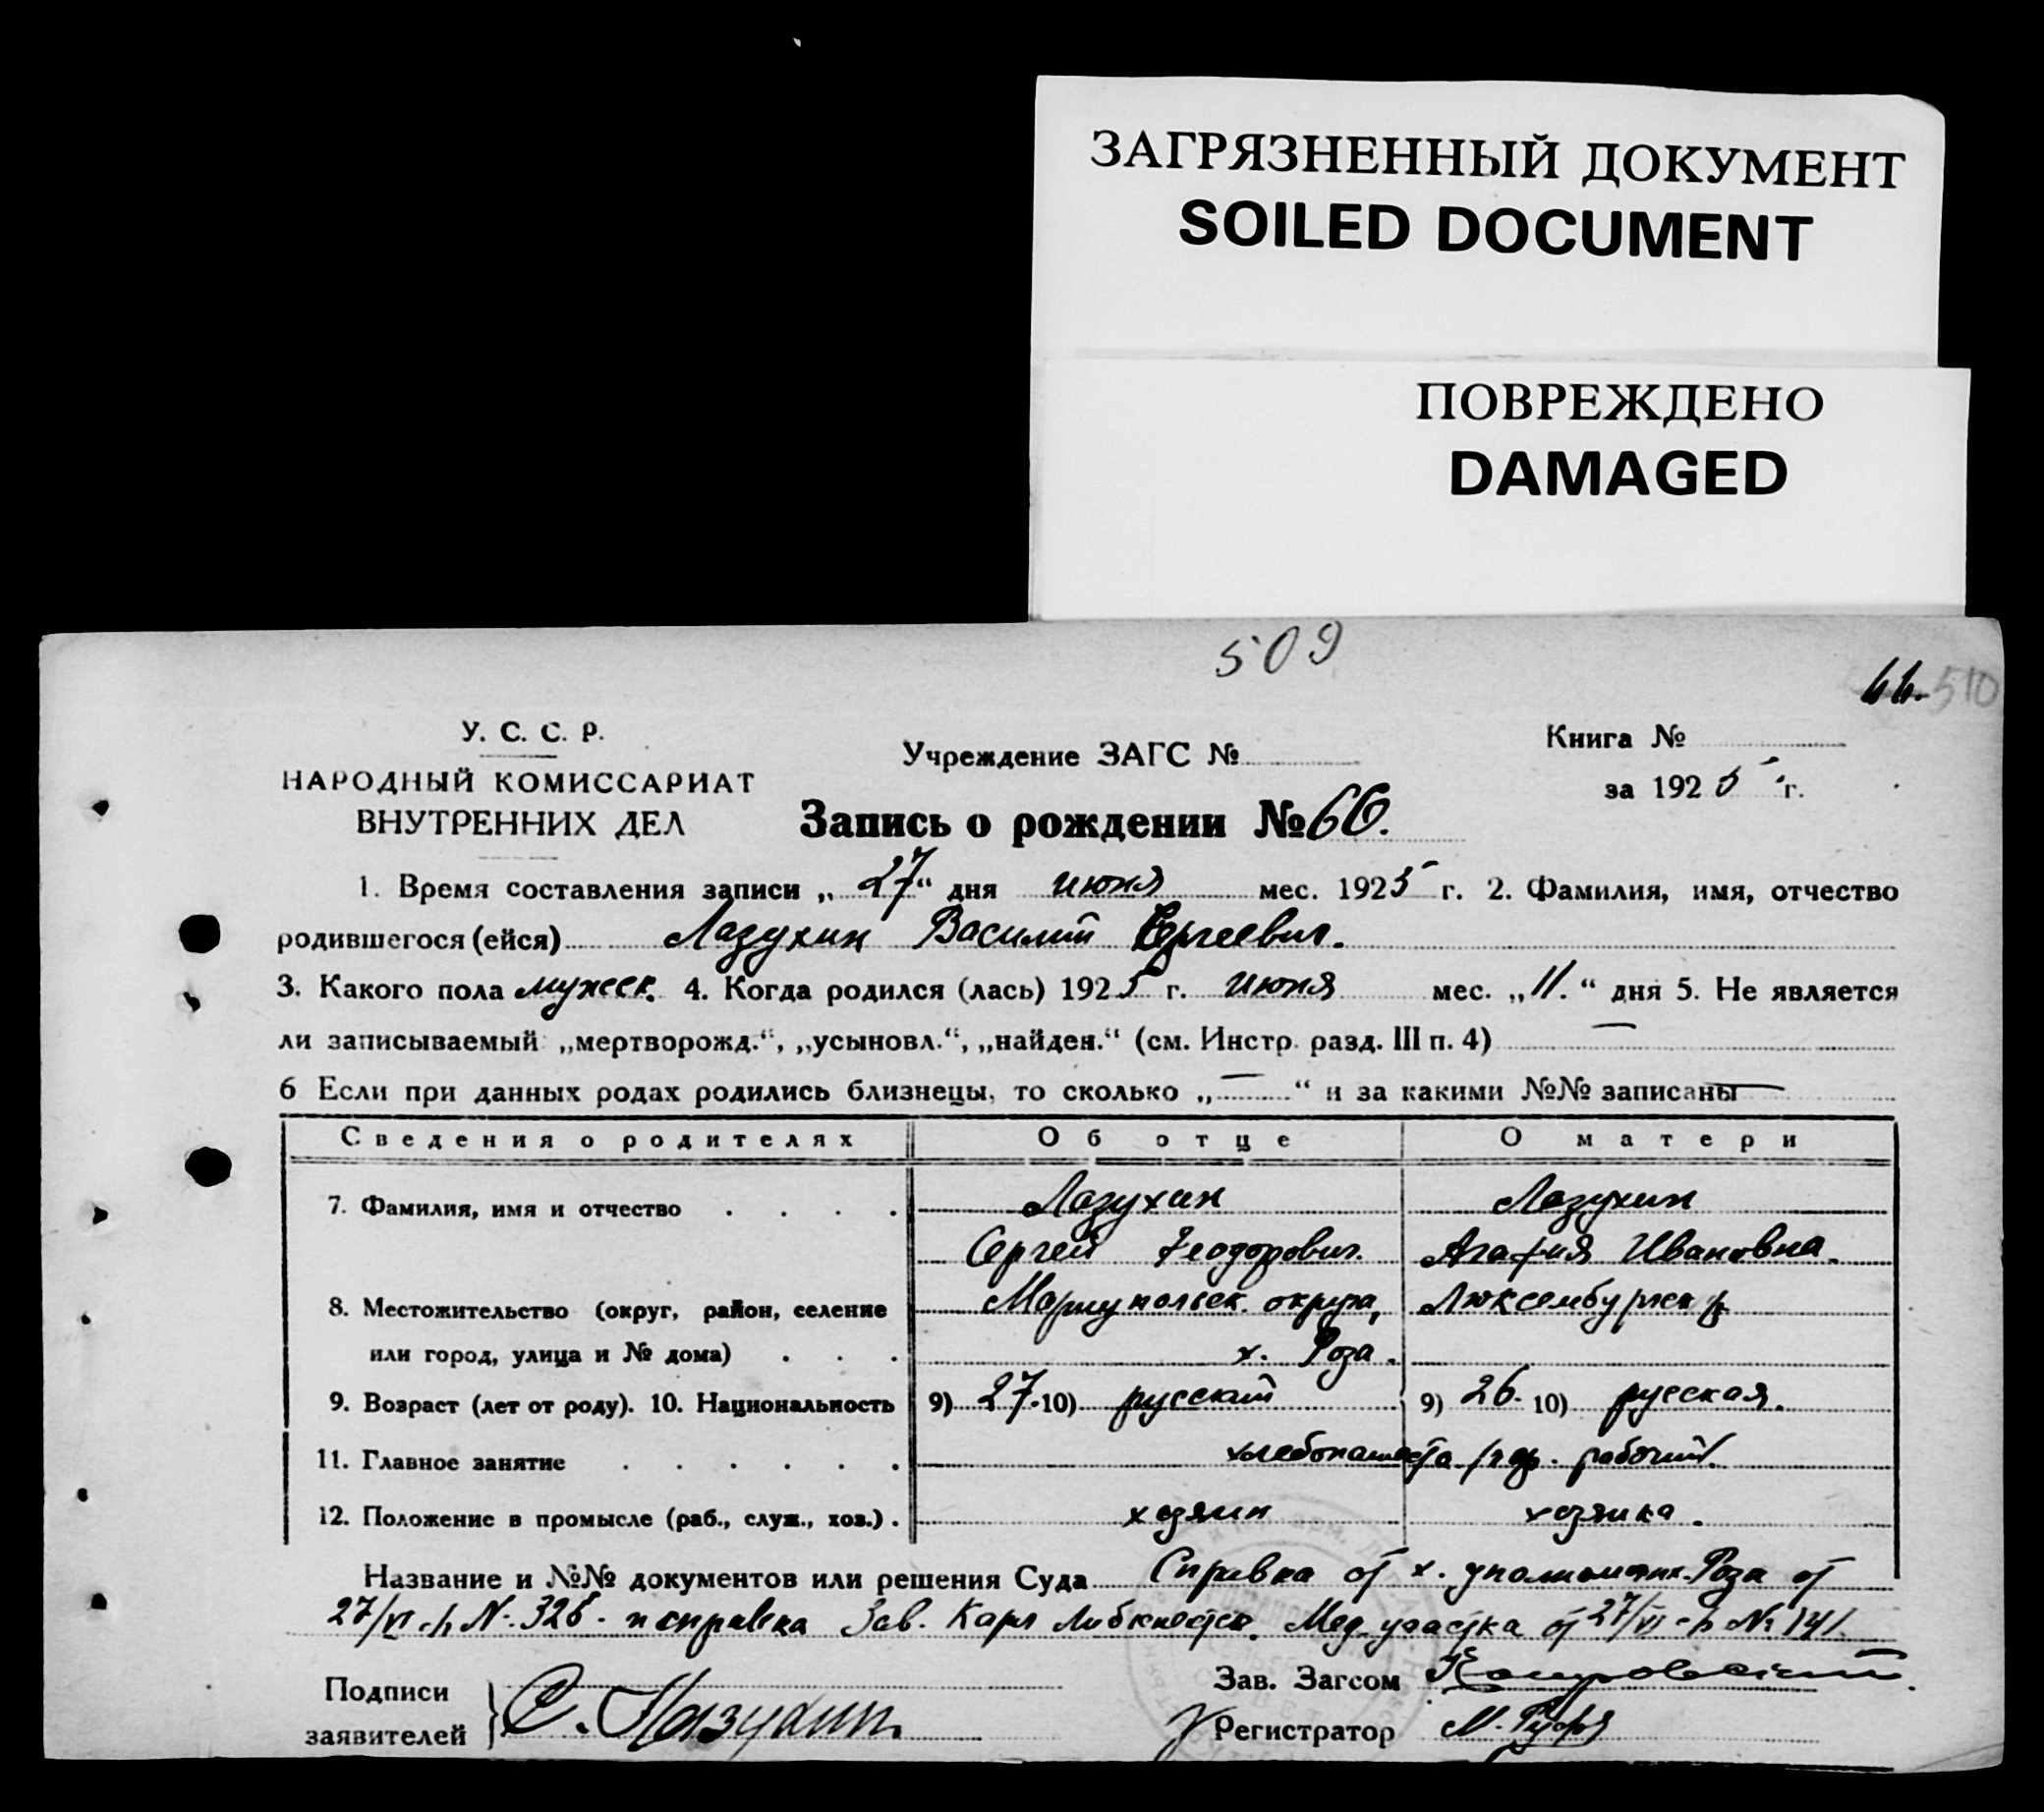 ЗАГРЯЗНЕННЫЙ ДОКУМЕНТ
SOILED DOCUMENT
ПОВРЕЖДЕНО
DAMAGED
509
66. 510
У. С. С. Р.
НАРОДНЫЙ КОМИССАРИАТ
ВНУТРЕННИХ ДЕЛ
Учреждение ЗАГС №
Книга №
за 1925 г.
Запись о рождении № 66.
1. Время составления записи „27“ дня июня мес. 1925 г. 2. Фамилия, имя, отчество
родившегося (ейся) Лазухин Василий Сергеевич.
3. Какого пола мужеск. 4. Когда родился (лась) 1925 г. июня мес. „11.“ дня 5. Не является
ли записываемый „мертворожд.“, „усыновл.“, „найден.“ (см. Инстр. разд. III п. 4) —
6 Если при данных родах родились близнецы, то сколько „—“ и за какими №№ записаны —
Сведения о родителях Об отце О матери
7. Фамилия, имя и отчество Лазухин Лазухин
Сергей Феодорович. Агафия Ивановна.
8. Местожительство (округ, район, селение Мариупольск. округа, Люксембургск р.
или город, улица и № дома) х. Роза.
9. Возраст (лет от роду). 10. Национальность 9) 27. 10) русский 9) 26. 10) русская.
11. Главное занятие рабочий.
12. Положение в промысле (раб., служ., хоз.) хозяин хозяйка.
Название и №№ документов или решения Суда Справка от х. Роза от
27/VI № 326. и справка Зав. Карл Либкнехтск. Мед. участка от 27/VI № 141.
Подписи
заявителей } С. Лазухин
Зав. Загсом
Регистратор М.